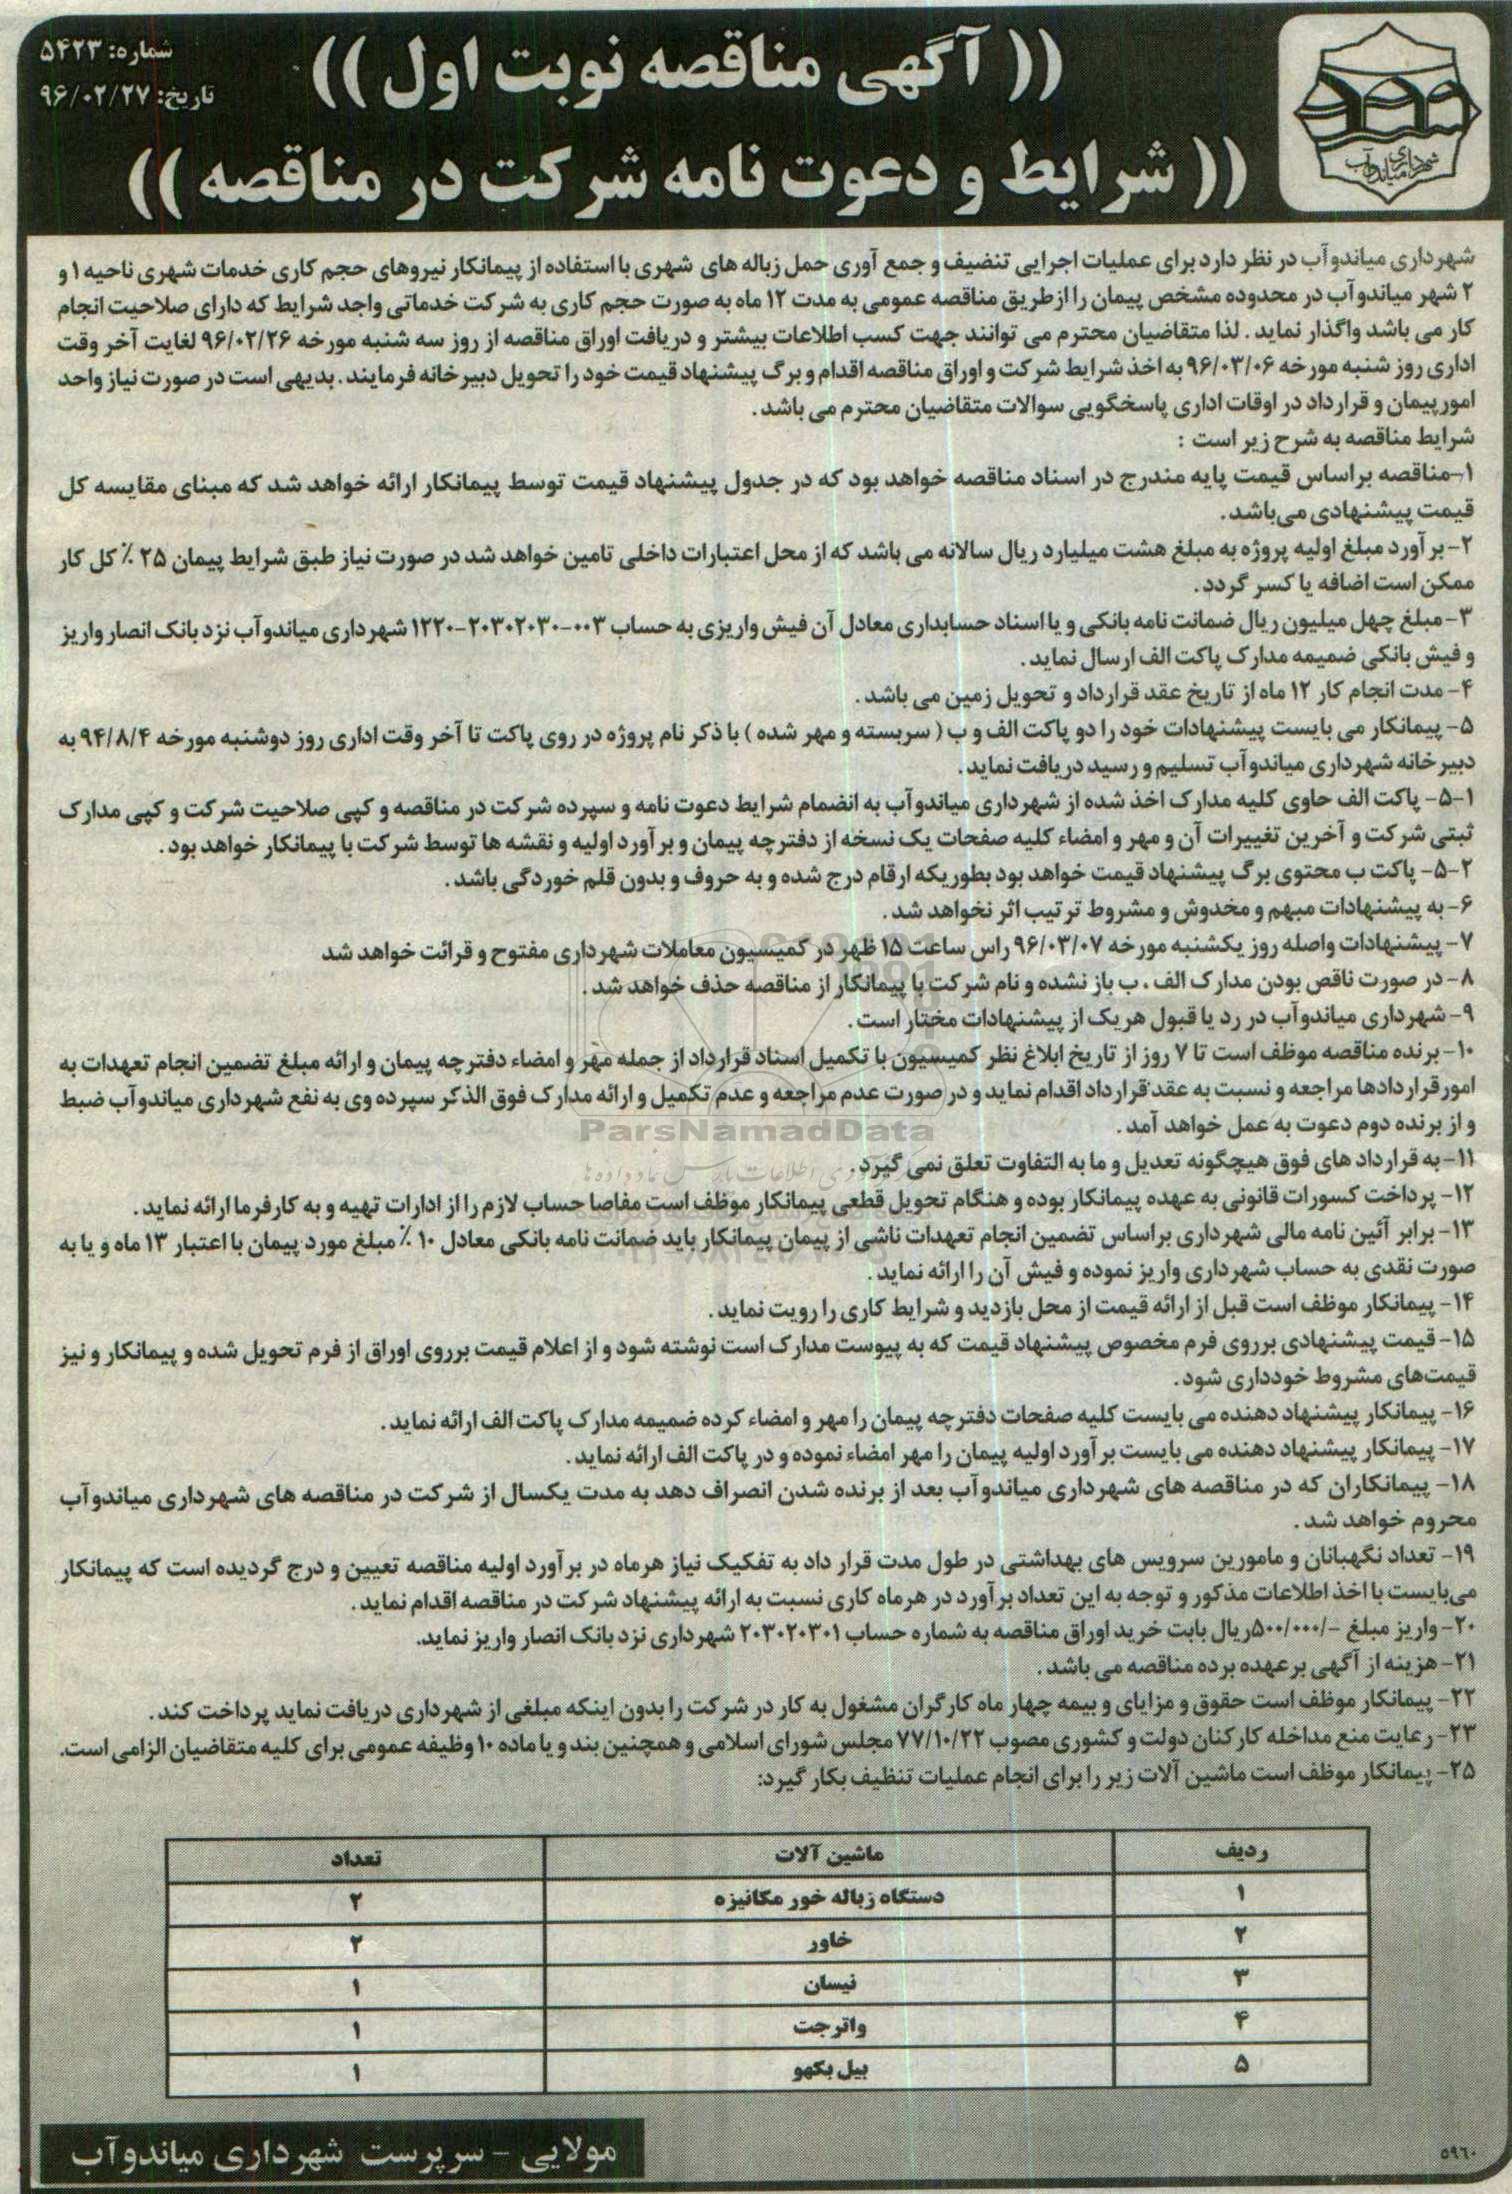 شماره: ۵۴۲۳
تاریخ: ۹۶/۰۲/۲۷
(( آگهی مناقصه نوبت اول ))
(( شرایط و دعوت نامه شرکت در مناقصه ))
شهرداری میاندوآب
شهرداری میاندوآب در نظر دارد برای عملیات اجرایی تنضیف و جمع آوری حمل زباله های شهری با استفاده از پیمانکار نیروهای حجم کاری خدمات شهری ناحیه ۱ و
۲ شهر میاندوآب در محدوده مشخص پیمان را از طریق مناقصه عمومی به مدت ۱۲ ماه به صورت حجم کاری به شرکت خدماتی واجد شرایط که دارای صلاحیت انجام
کار می باشد واگذار نماید . لذا متقاضیان محترم می توانند جهت کسب اطلاعات بیشتر و دریافت اوراق مناقصه از روز سه شنبه مورخه ۹۶/۰۲/۲۶ لغایت آخر وقت
اداری روز شنبه مورخه ۹۶/۰۳/۰۶ به اخذ شرایط شرکت و اوراق مناقصه اقدام و برگ پیشنهاد قیمت خود را تحویل دبیرخانه فرمایند . بدیهی است در صورت نیاز واحد
امور پیمان و قرارداد در اوقات اداری پاسخگویی سوالات متقاضیان محترم می باشد .
شرایط مناقصه به شرح زیر است :
۱-مناقصه براساس قیمت پایه مندرج در اسناد مناقصه خواهد بود که در جدول پیشنهاد قیمت توسط پیمانکار ارائه خواهد شد که مبنای مقایسه کل
قیمت پیشنهادی می‌باشد.
۲- بر آورد مبلغ اولیه پروژه به مبلغ هشت میلیارد ریال سالانه می باشد که از محل اعتبارات داخلی تامین خواهد شد در صورت نیاز طبق شرایط پیمان ۲۵ ٪ کل کار
ممکن است اضافه یا کسر گردد.
۳- مبلغ چهل میلیون ریال ضمانت نامه بانکی و یا اسناد حسابداری معادل آن فیش واریزی به حساب ۰۰۳-۲۰۳۰۲۰۳۰-۱۲۲۰ شهرداری میاندوآب نزد بانک انصار واریز
و فیش بانکی ضمیمه مدارک پاکت الف ارسال نماید .
۴- مدت انجام کار ۱۲ ماه از تاریخ عقد قرارداد و تحویل زمین می باشد .
۵- پیمانکار می بایست پیشنهادات خود را دو پاکت الف و ب ( سربسته و مهر شده ) با ذکر نام پروژه در روی پاکت تا آخر وقت اداری روز دوشنبه مورخه ۹۴/۸/۴ به
دبیرخانه شهرداری میاندوآب تسلیم و رسید دریافت نماید.
۵-۱- پاکت الف حاوی کلیه مدارک اخذ شده از شهرداری میاندوآب به انضمام شرایط دعوت نامه و سپرده شرکت در مناقصه و کپی صلاحیت شرکت و کپی مدارک
ثبتی شرکت و آخرین تغییرات آن و مهر و امضاء کلیه صفحات یک نسخه از دفترچه پیمان و بر آورد اولیه و نقشه ها توسط شرکت با پیمانکار خواهد بود .
۵-۲- پاکت ب محتوی برگ پیشنهاد قیمت خواهد بود بطوریکه ارقام درج شده و به حروف و بدون قلم خوردگی باشد .
۶- به پیشنهادات مبهم و مخدوش و مشروط ترتیب اثر نخواهد شد .
۷- پیشنهادات واصله روز یکشنبه مورخه ۹۶/۰۳/۰۷ راس ساعت ۱۵ ظهر در کمیسیون معاملات شهرداری مفتوح و قرائت خواهد شد
۸- در صورت ناقص بودن مدارک الف ، ب باز نشده و نام شرکت با پیمانکار از مناقصه حذف خواهد شد .
۹- شهرداری میاندوآب در رد یا قبول هریک از پیشنهادات مختار است .
۱۰- برنده مناقصه موظف است تا ۷ روز از تاریخ ابلاغ نظر کمیسیون با تکمیل اسناد قرارداد از جمله مهر و امضاء دفترچه پیمان و ارائه مبلغ تضمین انجام تعهدات به
امور قراردادها مراجعه و نسبت به عقد قرارداد اقدام نماید و در صورت عدم مراجعه و عدم تکمیل و ارائه مدارک فوق الذکر سپرده وی به نفع شهرداری میاندوآب ضبط
و از برنده دوم دعوت به عمل خواهد آمد .
ParsNamadData
۱۱- به قرارداد های فوق هیچگونه تعدیل و ما به التفاوت تعلق نمی گیرد .
۱۲- پرداخت کسورات قانونی به عهده پیمانکار بوده و هنگام تحویل قطعی پیمانکار موظف است مفاصا حساب لازم را از ادارات تهیه و به کارفرما ارائه نماید .
۱۳- برابر آئین نامه مالی شهرداری براساس تضمین انجام تعهدات ناشی از پیمان پیمانکار باید ضمانت نامه بانکی معادل ۱۰ ٪ مبلغ مورد پیمان با اعتبار ۱۳ ماه و یا به
صورت نقدی به حساب شهرداری واریز نموده و فیش آن را ارائه نماید .
۱۴- پیمانکار موظف است قبل از ارائه قیمت از محل بازدید و شرایط کاری را رویت نماید .
۱۵- قیمت پیشنهادی برروی فرم مخصوص پیشنهاد قیمت که به پیوست مدارک است نوشته شود و از اعلام قیمت برروی اوراق از فرم تحویل شده و پیمانکار و نیز
قیمت‌های مشروط خودداری شود .
۱۶- پیمانکار پیشنهاد دهنده می بایست کلیه صفحات دفترچه پیمان را مهر و امضاء کرده ضمیمه مدارک پاکت الف ارائه نماید .
۱۷- پیمانکار پیشنهاد دهنده می بایست بر آورد اولیه پیمان را مهر امضاء نموده و در پاکت الف ارائه نماید .
۱۸- پیمانکاران که در مناقصه های شهرداری میاندوآب بعد از برنده شدن انصراف دهد به مدت یکسال از شرکت در مناقصه های شهرداری میاندوآب
محروم خواهد شد .
۱۹- تعداد نگهبانان و مامورین سرویس های بهداشتی در طول مدت قرار داد به تفکیک نیاز هرماه در بر آورد اولیه مناقصه تعیین و درج گردیده است که پیمانکار
می‌بایست با اخذ اطلاعات مذکور و توجه به این تعداد بر آورد در هرماه کاری نسبت به ارائه پیشنهاد شرکت در مناقصه اقدام نماید .
۲۰- واریز مبلغ -/۵۰۰/۰۰۰ریال بابت خرید اوراق مناقصه به شماره حساب ۲۰۳۰۲۰۳۰۱ شهرداری نزد بانک انصار واریز نماید.
۲۱- هزینه از آگهی بر عهده برده مناقصه می باشد .
۲۲- پیمانکار موظف است حقوق و مزایای و بیمه چهار ماه کارگران مشغول به کار در شرکت را بدون اینکه مبلغی از شهرداری دریافت نماید پرداخت کند .
۲۳- رعایت منع مداخله کارکنان دولت و کشوری مصوب ۷۷/۱۰/۲۲ مجلس شورای اسلامی و همچنین بند و یا ماده ۱۰ وظیفه عمومی برای کلیه متقاضیان الزامی است.
۲۵- پیمانکار موظف است ماشین آلات زیر را برای انجام عملیات تنظیف بکار گیرد:
ردیف ماشین آلات تعداد
۱ دستگاه زباله خور مکانیزه ۲
۲ خاور ۲
۳ نیسان ۱
۴ واترجت ۱
۵ بیل بکهو ۱
مولایی - سرپرست شهرداری میاندوآب
۵۹۶۰